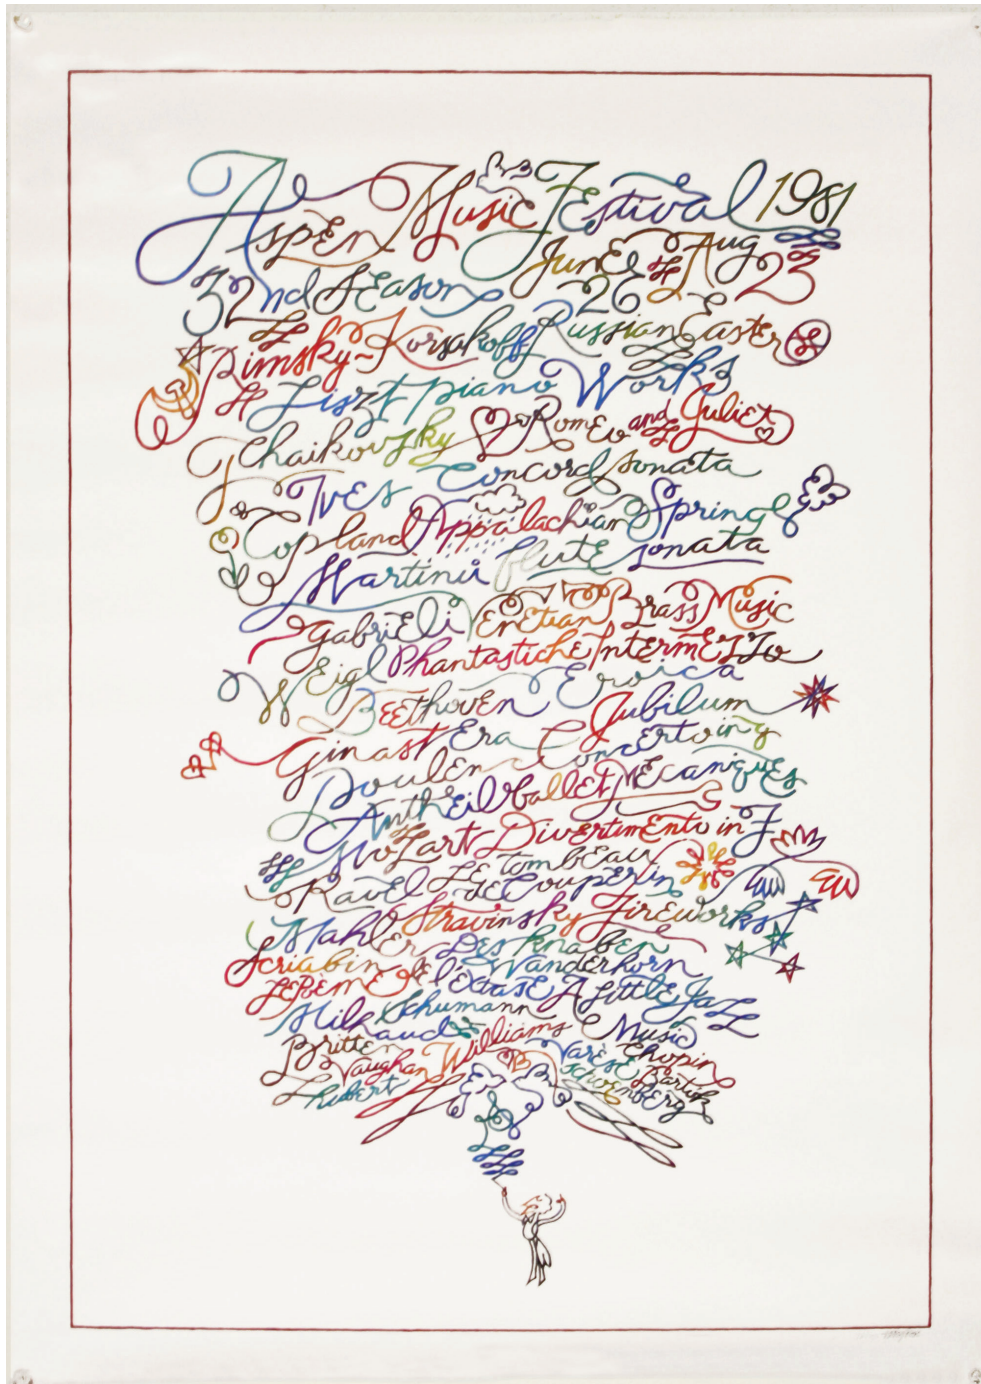 Aspen Music Festival 1981
32nd Season June 26 Aug 23
Rimsky-Korsakoff Russian Easter
Liszt piano Works
Tchaikovsky Romeo and Juliet
Ives Concord sonata
Copland Appalachian Spring
Martinů flute sonata
Gabrieli Venetian Brass Music
Weigl Phantastiche Intermezzo
Beethoven Eroica
Ginastera Jubilum
Poulenc Concerto in g
Antheil ballet Mecaniques
Mozart Divertimento in F
Ravel Le tombeau
de Couperin
Stravinsky Fireworks
Mahler Des Knaben
Wanderhorn
Scriabin
Le Poème de l'éxtase A Little Jazz
Milhaud Schumann Music
Britten Vaughan Williams Varèse Chopin
Shubert Schoenberg Bartók